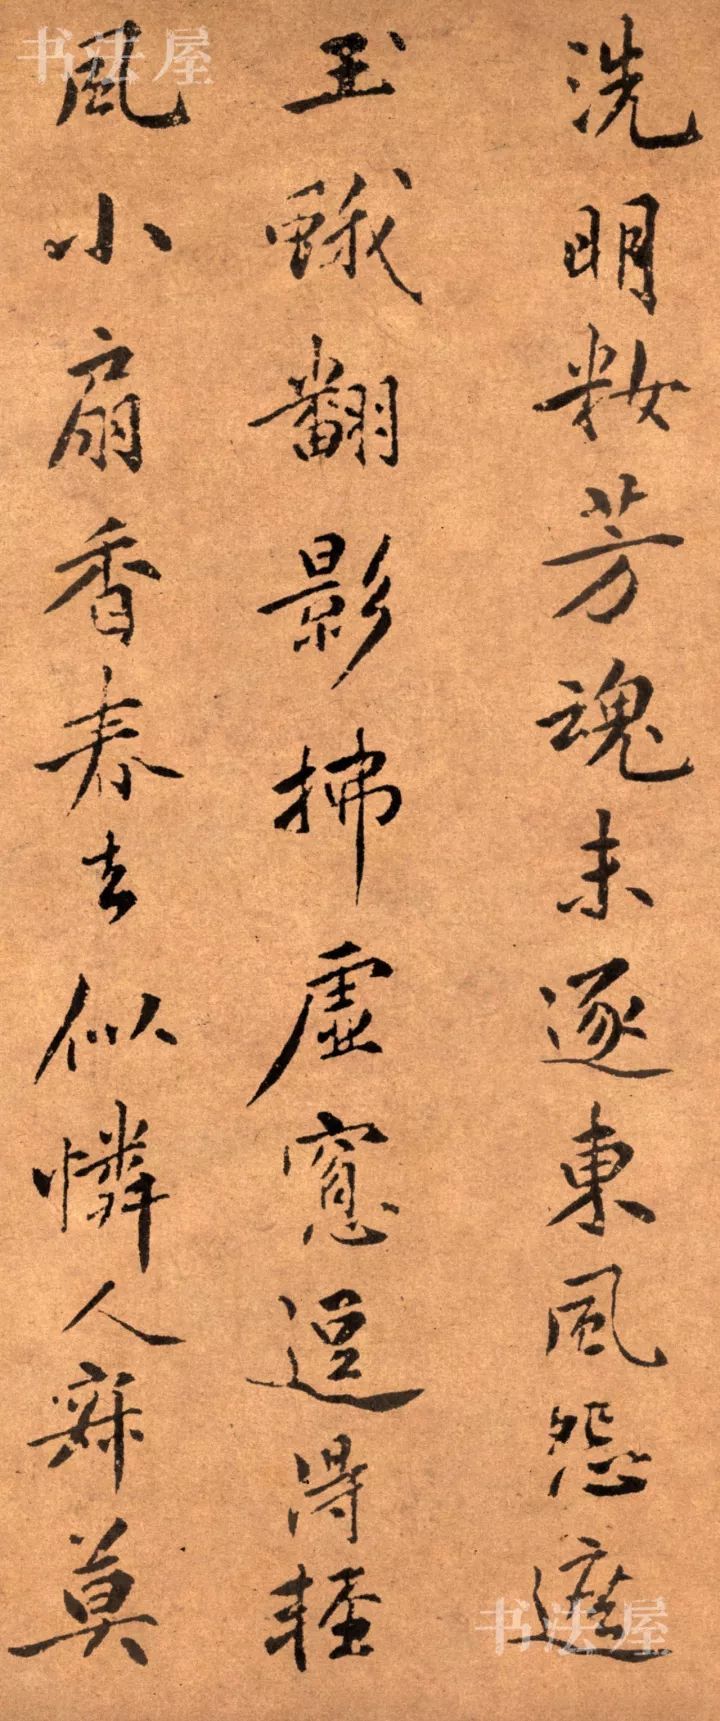 洗明妝芳魂未逐東風怨遮
玉蛾翻影拂虛窻逗得輕
風小扇香春去似憐人寂莫
书法屋
书法屋